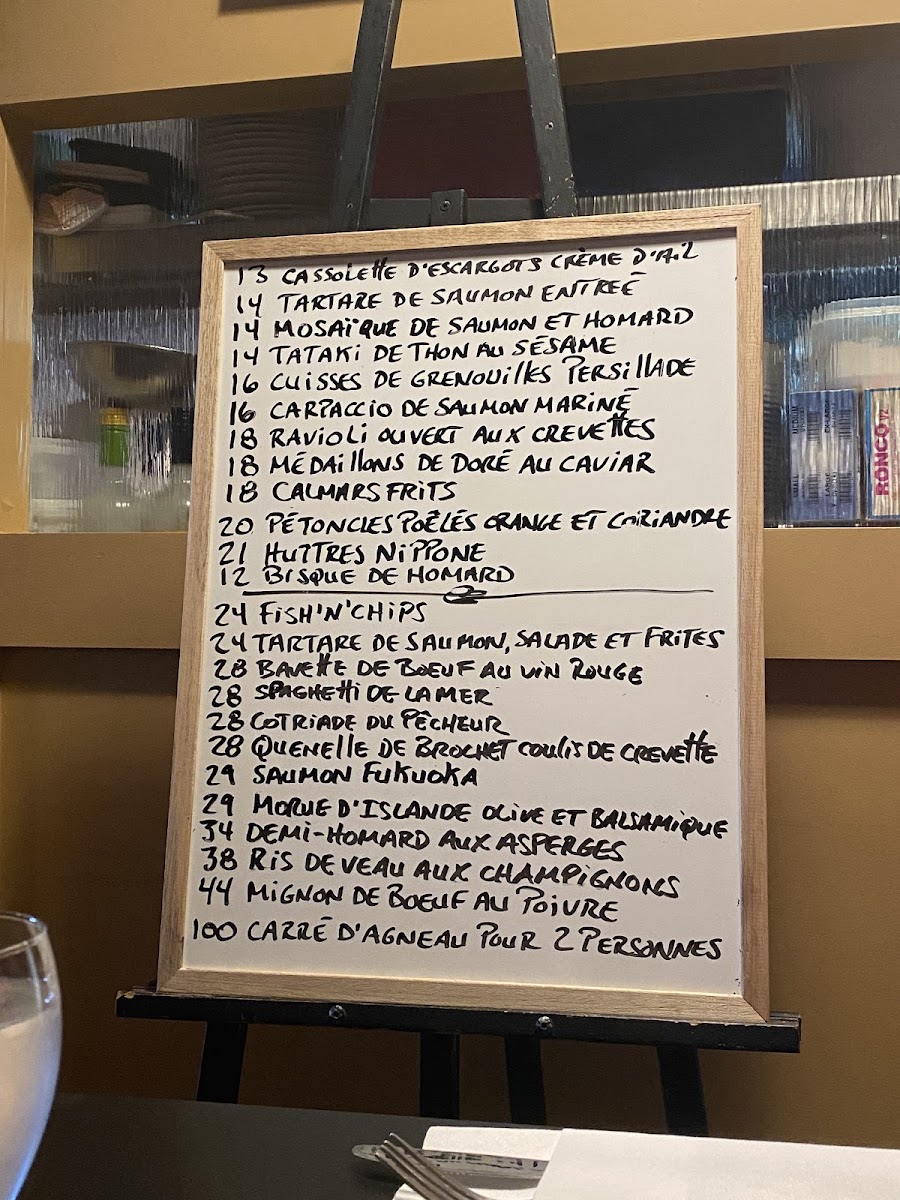 13 CASSOLETTE D'ESCARGOTS CRÈME D'AIL
14 TARTARE DE SAUMON ENTREÉ
14 MOSAÏQUE DE SAUMON ET HOMARD
14 TATAKI DE THON AU SÉSAME
16 CUISSES DE GRENOUILLES PERSILLADE
16 CARPACCIO DE SAUMON MARINÉ
18 RAVIOLI OUVERT AUX CREVETTES
18 MÉDAILLONS DE DORÉ AU CAVIAR
18 CALMARS FRITS
20 PÉTONCLES POÊLÉS ORANGE ET CORIANDRE
21 HUÎTRES NIPPONE
12 BISQUE DE HOMARD
24 FISH'N'CHIPS
24 TARTARE DE SAUMON, SALADE ET FRITES
28 BAVETTE DE BOEUF AU VIN ROUGE
28 SPAGHETTI DE LA MER
28 COTRIADE DU PÊCHEUR
28 QUENELLE DE BROCHET COULIS DE CREVETTE
29 SAUMON FUKUOKA
29 MORUE D'ISLANDE OLIVE ET BALSAMIQUE
34 DEMI-HOMARD AUX ASPERGES
38 RIS DE VEAU AUX CHAMPIGNONS
44 MIGNON DE BOEUF AU POIVRE
100 CARRÉ D'AGNEAU POUR 2 PERSONNES
RONCO